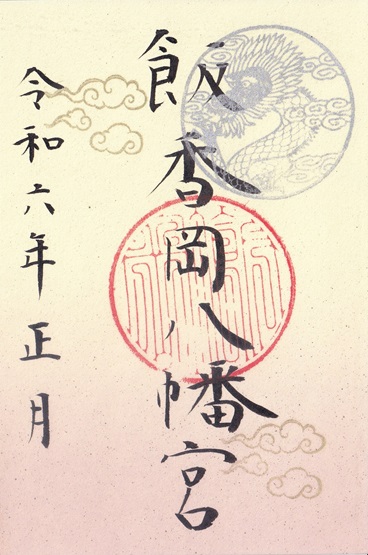 飯香岡八幡宮
令和六年正月